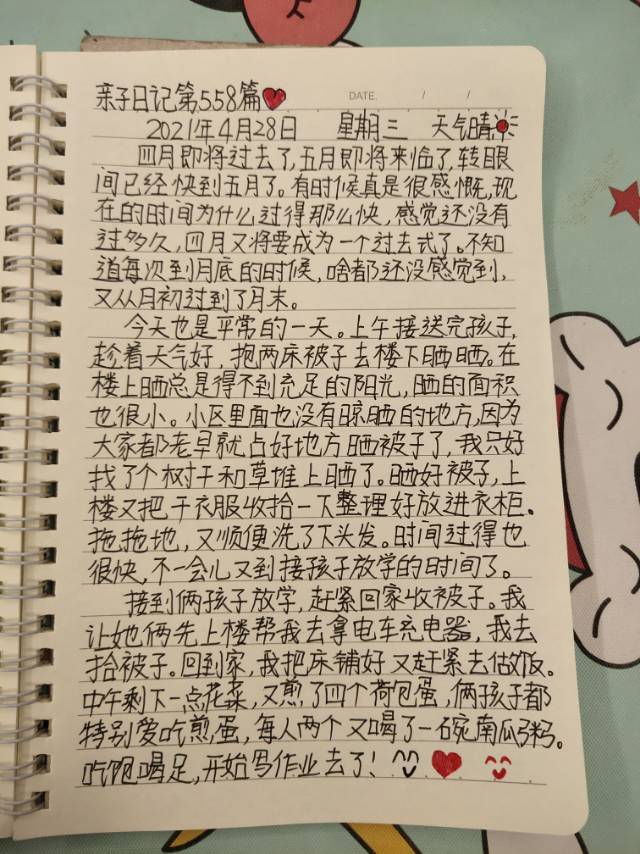 亲子日记第558篇
DATE. / /
2021年4月28日 星期三 天气晴
四月即将过去了,五月即将来临了,转眼
间已经快到五月了。有时候真是很感慨,现
在的时间为什么过得那么快,感觉还没有
过多久,四月又将要成为一个过去式了。不知
道每次到月底的时候,啥都还没感觉到,
又从月初过到了月末。
今天也是平常的一天。上午接送完孩子,
趁着天气好,抱两床被子去楼下晒晒。在
楼上晒总是得不到充足的阳光,晒的面积
也很小。小区里面也没有晾晒的地方,因为
大家都老早就占好地方晒被子了,我只好
找了个树干和草堆上晒了。晒好被子,上
楼又把干衣服收拾一下整理好放进衣柜。
拖拖地,又顺便洗了下头发。时间过得也
很快,不一会儿又到接孩子放学的时间了。
接到俩孩子放学,赶紧回家收被子。我
让她俩先上楼帮我去拿电车充电器,我去
拾被子。回到家,我把床铺好又赶紧去做饭。
中午剩下一点花菜,又煎了四个荷包蛋,俩孩子都
特别爱吃煎蛋,每人两个又喝了一碗南瓜粥。
吃饱喝足,开始写作业去了!